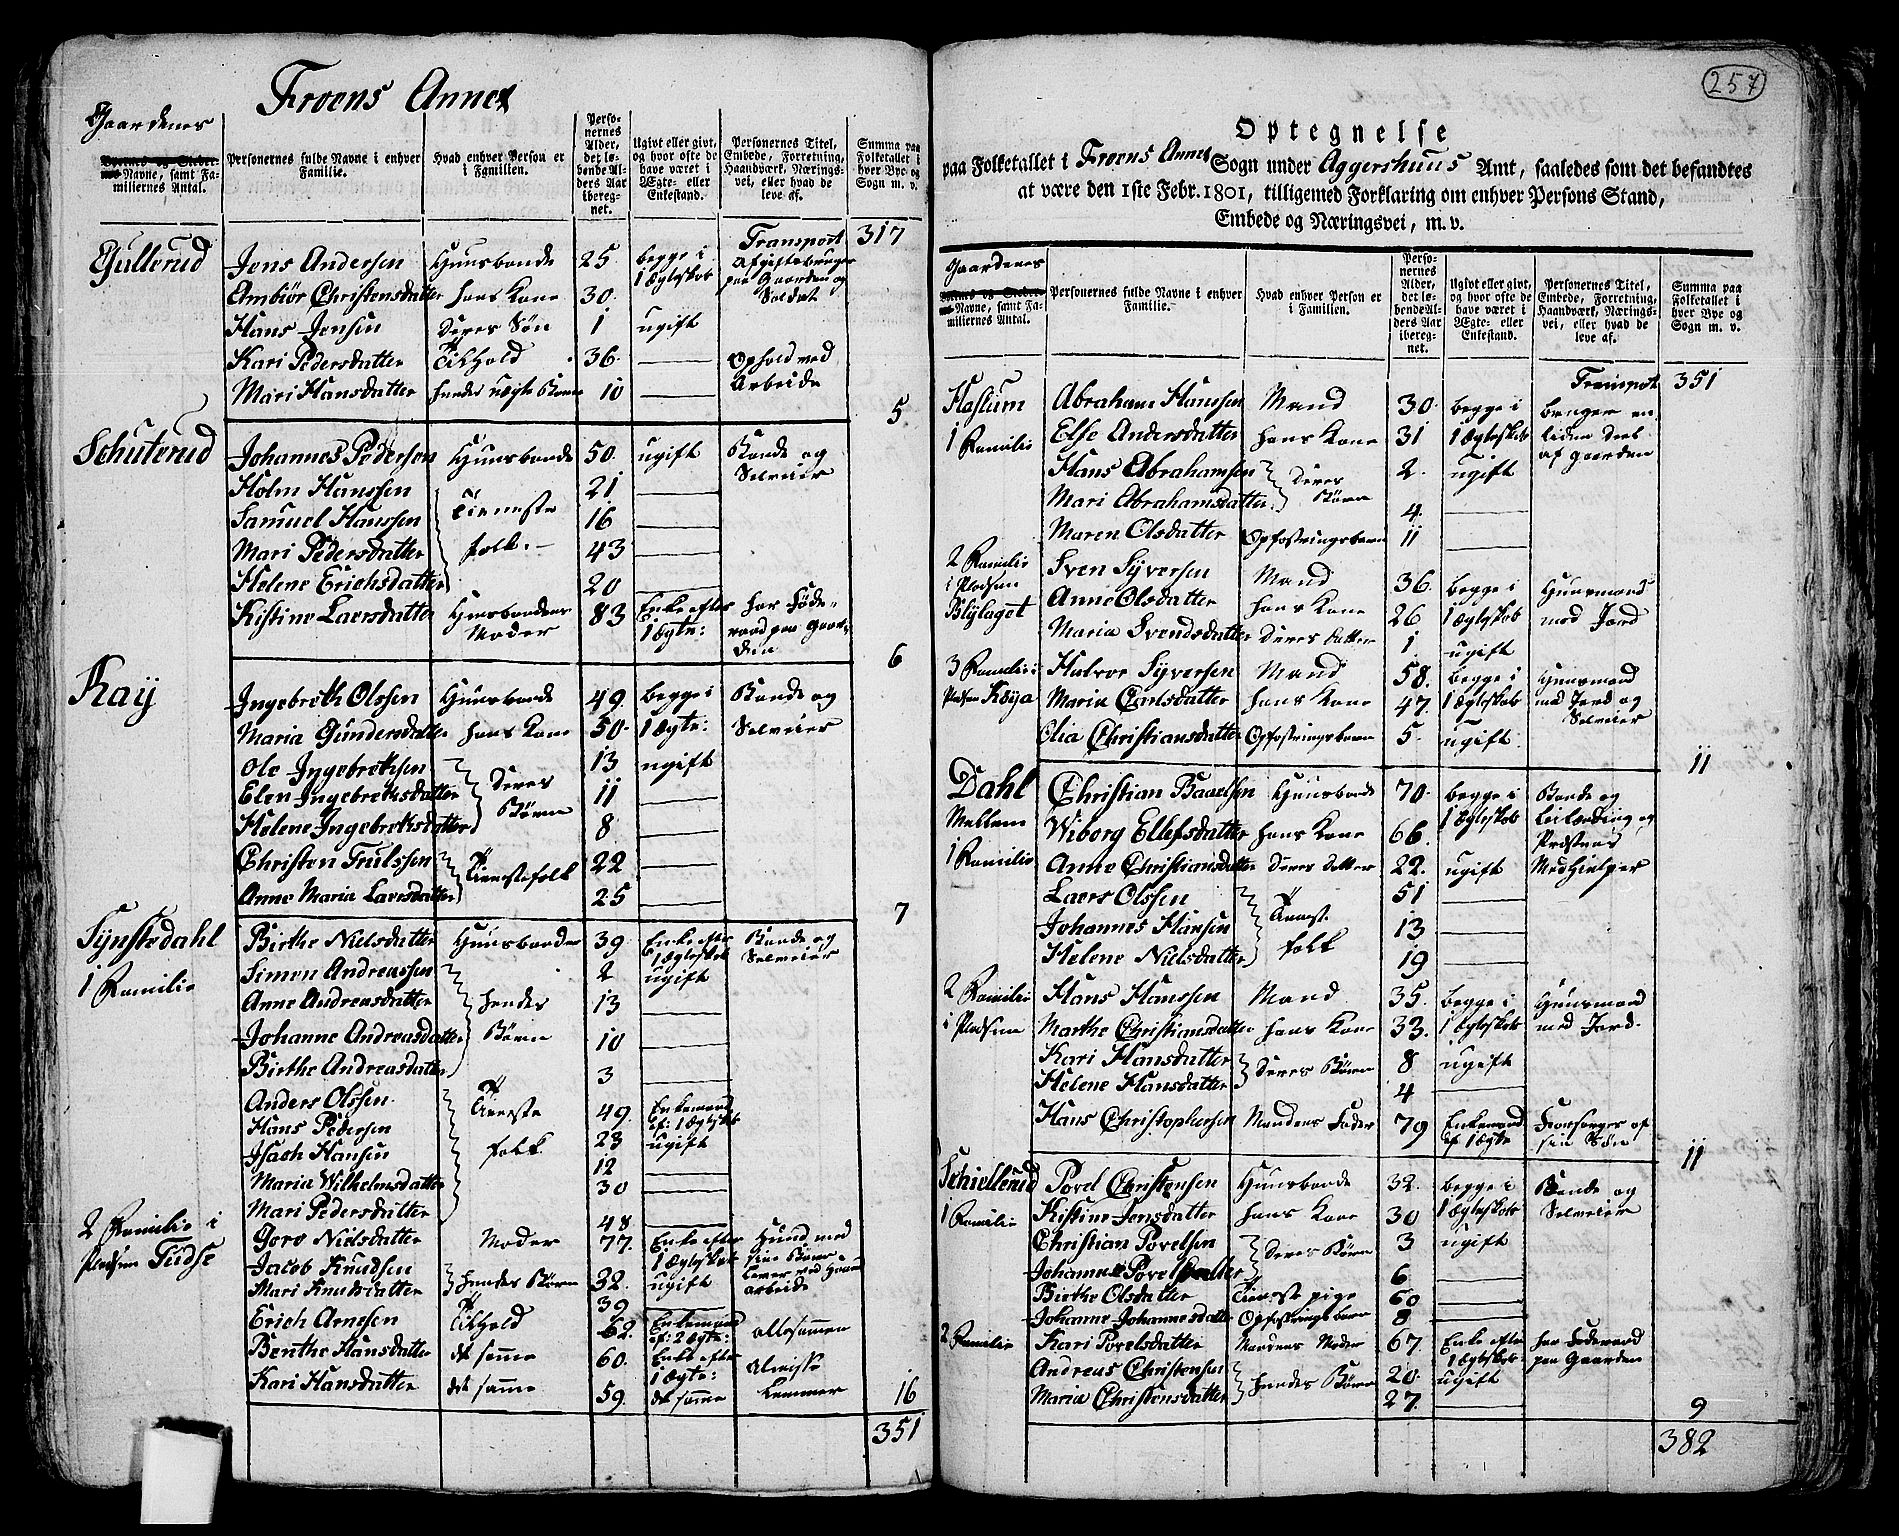 Froens Annex
Gaardenes
Byernes og Stedernes Navne, samt Familiernes Antal.
Personernes fulde Navne i enhver Familie.
Hvad enhver Person er i Familien.
Personernes Alder, det løbende Alders Aar iberegnet.
Ugivt eller givt, og hvor ofte de have været i Ægte- eller Enkestand.
Personernes Titel, Embede, Forretning, Haandværk, Næringsvei, eller hvad de leve af.
Summa paa Folketallet i hver Bye og Sogn m. v.
Transport 317
Gullerud Jens Andersen Huusbonde 25. begge i Afgiftsbruger
Ambiør Christensdatter hans Kone 30. 1 Ægteskab paa Gaarden og Soldat
Hans Jensen Deres Søn 1 ugift
Kari Pedersdatter Tilhold 36. — Ophold ved
Mari Hansdatter hendes uægte Barn 10 — Arbeide
5
Schuterud Johannes Pedersen Huusbonde 50. ugift Bonde og
Holm Hanssen Tieneste 21 — Selveier
Samuel Hanssen folk. 16 —
Mari Pedersdatter 43 —
Helene Erichsdatter 20 —
Kistine Laersdatter Huusbondens Moder 83 Enke efter 1 Ægte: har Føderaad paa Gaarden
6
Kay Ingebreth Olssen Huusbonde 49. begge i Bonde og
Maria Gundersdatter hans Kone 50. 1 Ægte: Selveier
Ole Ingebrethsen Deres 13 ugift
Elen Ingebrethsdatter Børn 11 —
Helene Ingebrethsdatter 8 —
Christen Trulssen Tienestefolk 22 —
Anne Maria Laersdatter 25 —
7
Synstedahl Birthe Nielsdatter Huusbonde 39. Enke efter Bonde og
1 Familie Simon Andreassen 2 1 Ægteskab Selveier
Anne Andreasdatter hendes 13 ugift
Johanne Andreasdatter Børn 10 —
Birthe Andreasdatter 3 —
Anders Olssen Tieneste 49. Enkemand
Hans Pedersen folk 23 ef: 1 Ægteskab
Isach Hansen 12 ugift
Maria Wilhelmsdatter 30 —
Mari Pedersdatter 48 —
2 Familie i Goro Nielsdatter Moder 77. Enke efter
Pladsen Tudse Jacob Knudsen hendes Børn 32. 1 Ægteskab
Mari Knudsdatter 39 ugift
arbeide
Erich Arnesen Tilhold 62. Enkemand allesammen
ef: 2 Ægte:
Berthe Hansdatter det samme 60. Enke efter Almisse
1 Ægte:
Kari Hansdatter det samme 59. det samme Lemmer 16
351
257
Optegnelse
paa Folketallet i Froens Annex Sogn under Aggershuus Amt, saaledes som det befandtes
at være den 1ste Febr. 1801, tilligemed Forklaring om enhver Persons Stand,
Embede og Næringsvei, m. v.
Gaardenes
Byernes og Stedernes Navne, samt Familiernes Antal.
Personernes fulde Navne i enhver Familie.
Hvad enhver Person er i Familien.
Personernes Alder, det løbende Alders Aar iberegnet.
Ugivt eller givt, og hvor ofte de have været i Ægte- eller Enkestand.
Personernes Titel, Embede, Forretning, Haandværk, Næringsvei, eller hvad de leve af.
Summa paa Folketallet i hver Bye og Sogn m. v.
Transport 351
Haslum Abraham Hanssen Mand 30. begge i bruger en
1 Familie Else Andersdatter hans Kone 31 1 Ægteskab liden Deel
Hans Abrahamsen Deres 2. ugift af Gaarden
Mari Abrahamsdatter Børn 4. —
Maren Olsdatter Opfostringsbarn 11 —
2 Familie Sven Syversen Mand 36. begge i Huusmand
i Pladsen Anne Olsdatter hans Kone 26 1 Ægteskab med Jord
Blylaget Maria Svendsdatter Deres Datter 1 ugift
3 Familie i Halvor Syversen Mand 58. begge i Huusmand
Pladsen Køya Maria Carlsdatter hans Kone 47. 1 Ægteskab med Jord og
Olia Christiansdatter Opfostringsbarn 5. ugift. Selveier
11
Dahl Christian Paaelsen Huusbonde 70. begge i Bonde og
Mellem Wiborg Ellefsdatter hans Kone 66. 1 Ægteskab
1 Familie Anne Christiansdatter Deres Datter 22. ugift Medhielper
Laers Olssen Tieneste 51 —
Johannes Hansen folk 13 —
Helene Nielsdatter 19 —
2 Familie Hans Hanssen Mand 35. begge i Huusmand
i Pladsen Marthe Christiansdatter hans Kone 33. 1 Ægteskab med Jord.
Kari Hansdatter Deres Børn 8 ugift
Helene Hansdatter 4 —
Hans Christophersen Mandens Fader 79 Enkemand Forsørges af
ef 1 Ægte sin Søn
11
Schiellerud Povel Christensen Huusbonde 32. begge i Bonde og
1 Familie Kistine Jensdatter hans Kone 30 1 Ægteskab Selveier
Christian Povelsen Deres Børn 3 ugift
Johanne Povelsdatter 6 —
Birthe Olsdatter Tieneste pige 60 —
Johanne Johannesdatter Opfostringsbarn 8 —
2 Familie Kari Povelsdatter Mandens Moder 67 Enke efter har Føderaad
1 Ægteskab: paa Gaarden
Andreas Christensen hendes Børn 20. ugift
Maria Christensdatter 27. —
9
382